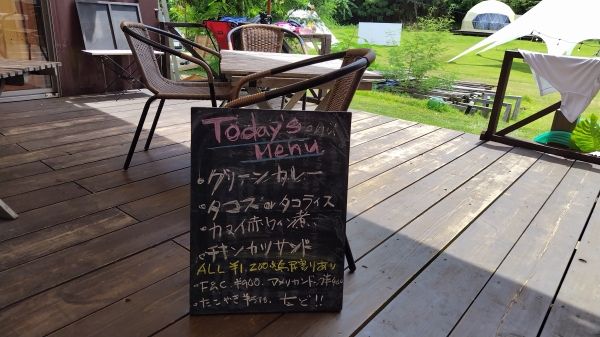 Today's
Menu
・グリーンカレー
・タコス or タコライス
・カマイ赤ワイン煮
・チキンカツサンド
ALL ¥1,200
・F&C. ¥900. アメリカンドッグ
・たこやき ¥510. など!!